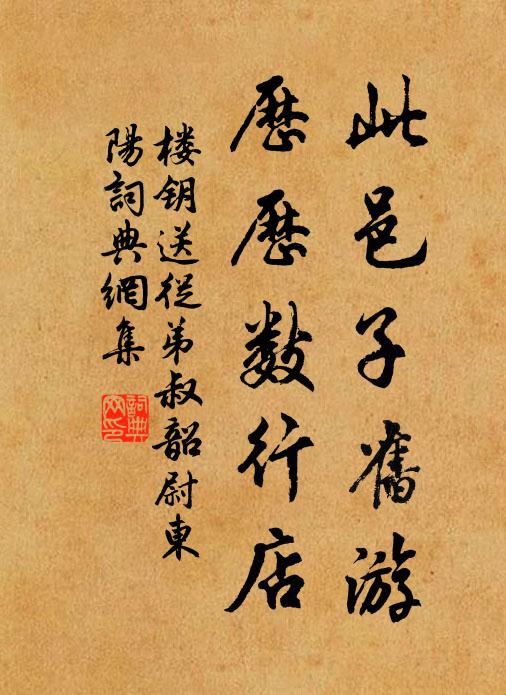 此邑子舊游
歷歷数行店
楼钥送從弟叔韶尉東
陽詞典網集
詞典
网印